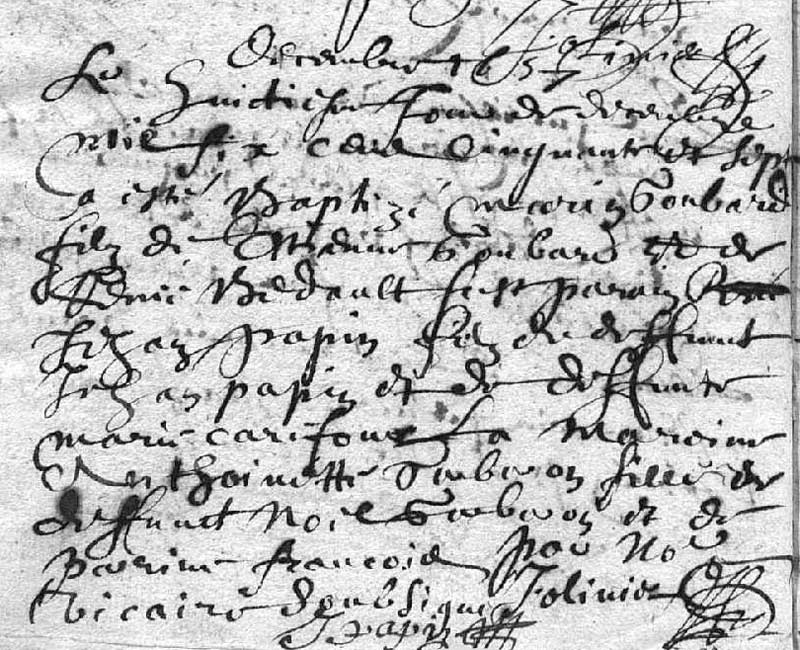 Decembre 1657
Le huictiesme jour de decembre
mil six cens cinquante et sept
a esté Baptizé morin Goubard
filz de Goubard et de
Renée Bedault fust parain
Jehan papin filz de deffunct
Jehan papin et de deffuncte
marie carrefour La Maraine
Anthoinette Gaberon fille de
deffunct Noel Gaberon et de
perrine francois par No
vicaire soubsigné J olivier
J Papin